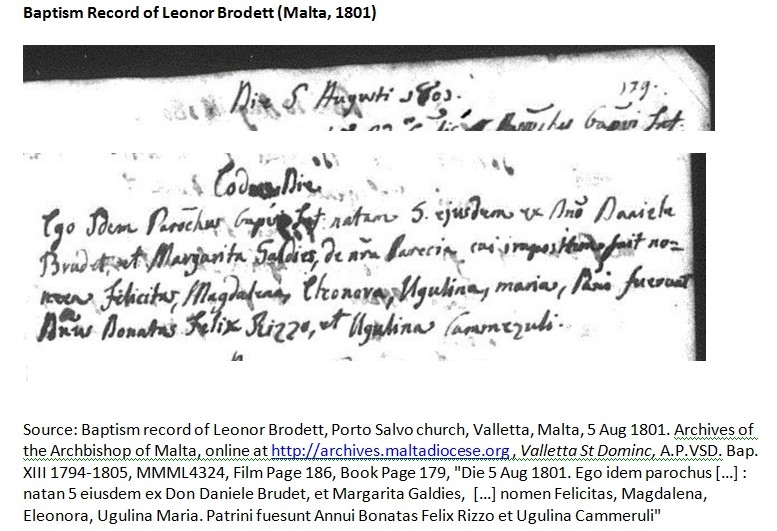 Baptism Record of Leonor Brodett (Malta, 1801)
Die 5 Augusti 1801.
179.
Parochus Bapvi Inf.
Eodem Die
Ego Idem Parochus Bapvi Inf. natam 5. ejusdem ex Dno Daniele
Brudet, et Margarita Galdies, de nra Parecia cui impositum fuit no=
men Felicitas, Magdalena, Eleonora, Ugulina, maria, Pni fuerunt
Donatus Felix Rizzo, et Ugulina Cammezuli.
Source: Baptism record of Leonor Brodett, Porto Salvo church, Valletta, Malta, 5 Aug 1801. Archives of
the Archbishop of Malta, online at http://archives.maltadiocese.org , Valletta St Dominc, A.P.VSD. Bap.
XIII 1794-1805, MMML4324, Film Page 186, Book Page 179, "Die 5 Aug 1801. Ego idem parochus [...] :
natan 5 eiusdem ex Don Daniele Brudet, et Margarita Galdies, [...] nomen Felicitas, Magdalena,
Eleonora, Ugulina Maria. Patrini fuesunt Annui Bonatas Felix Rizzo et Ugulina Cammeruli"